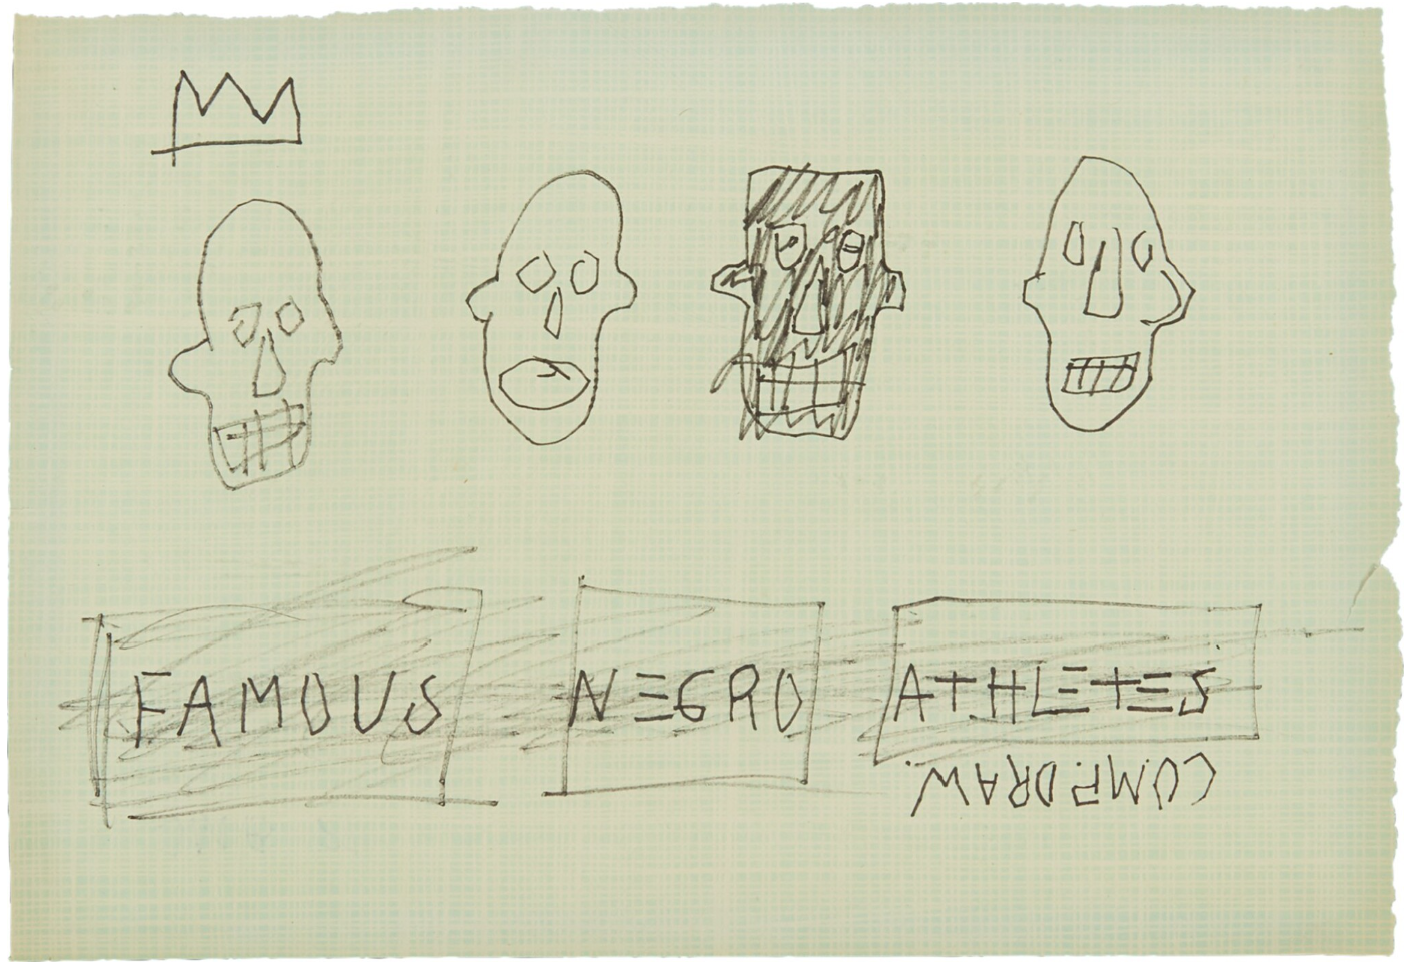 FAMOUS NEGRO ATHLETES
COMP.DRAW.